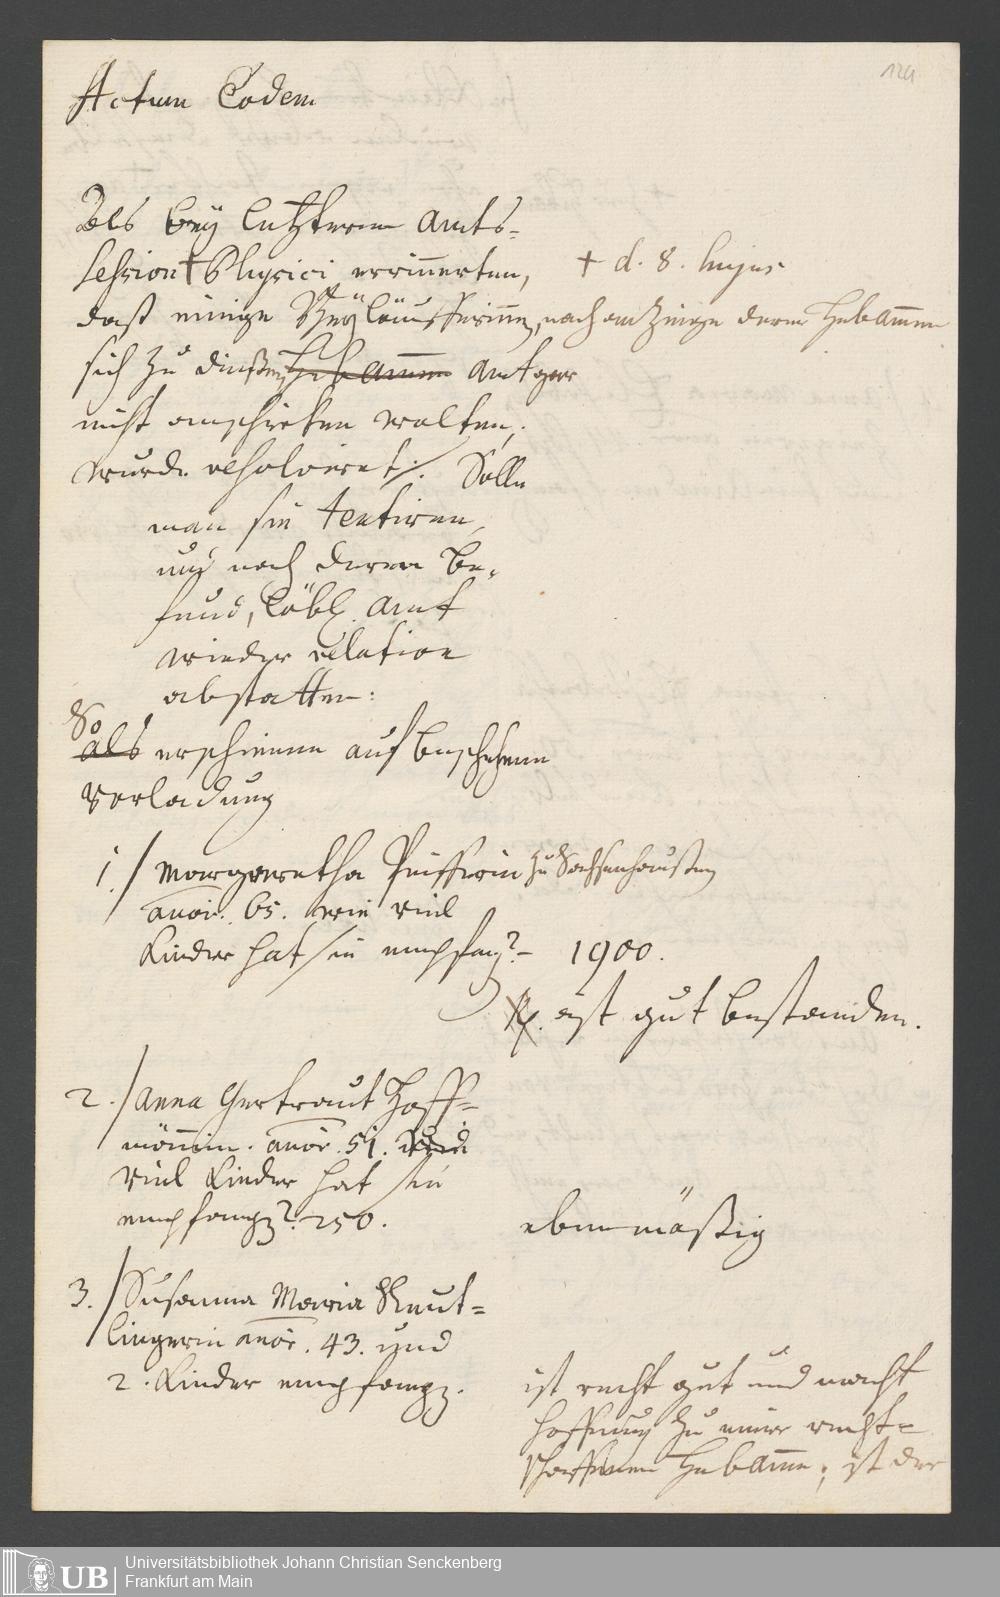 124
Actum Eodem
Als bey letzterm Amts-
Session † Physici erinnerten, † d. 8. hujus
daß einige Beyläufferinnen, nach anzeige deren Hebammen
sich zu dießem Hebammen Amt gar
nicht anschicken wolten,
wurde resolviret ./. Solle
man sie tentiren,
und nach deren Be-
fund, Löbl. Amt
wieder relation
abstatten:
So
als erschienen auf beschehene
Vorladung
1./ Margaretha Peifferin zu Sachsenhaußen
annor. 65. wie viel
Kinder hat sie empfang? - 1900.
Rx. ist gut bestanden.
2./ Anna Gertraut Hoff-
männin. annor. 51. Wie
viel Kinder hat sie
empfangen? 250.
ebenmäßig
3./ Susanna Maria Reut-
lingerin annor. 43. und
2. Kinder empfangen.
ist recht gut und macht
Hoffnung zu einer recht-
schaffenen Hebamme; ist der
UB Universitätsbibliothek Johann Christian Senckenberg
Frankfurt am Main